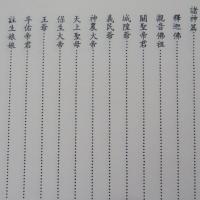 諸神篇
釋迦佛
觀音佛祖
關聖帝君
城隍爺
義民爺
神農大帝
天上聖母
保生大帝
王爺
斗佑帝君
註生娘娘